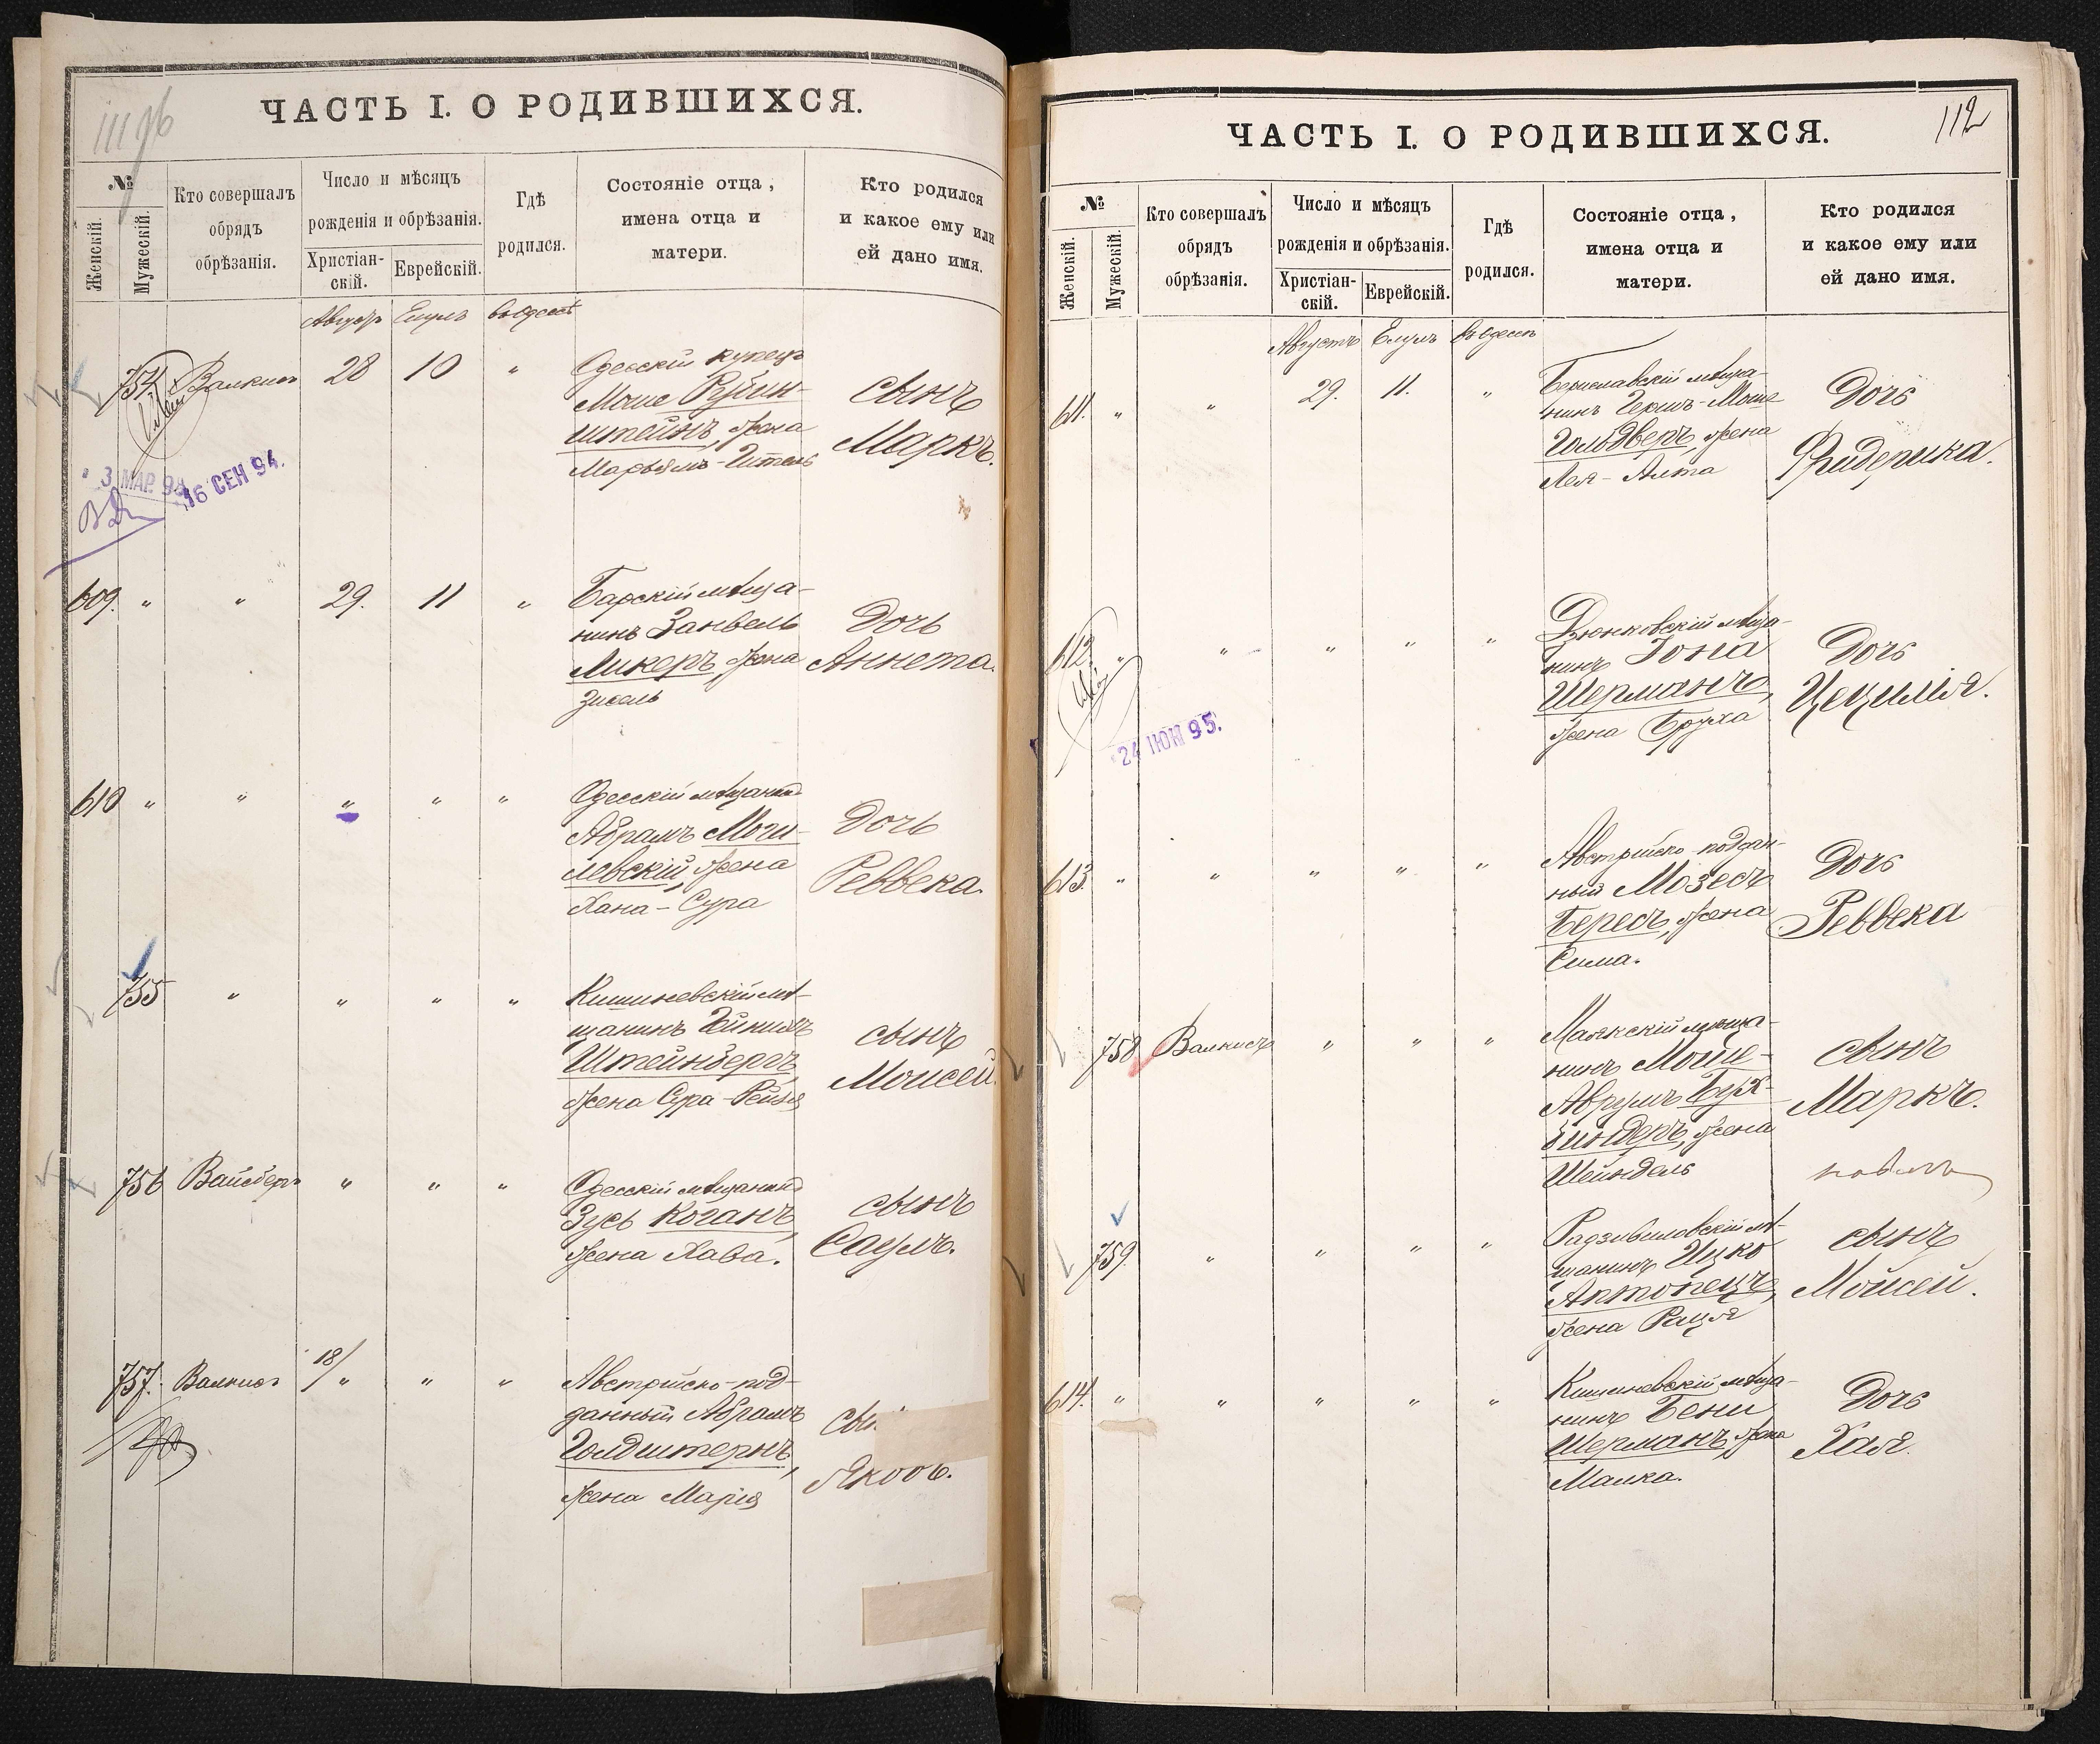 111 об
ЧАСТЬ I. О РОДИВШИХСЯ.
№
Женскій.
Мужескій.
Кто совершалъ
обрядъ
обрѣзанія.
Число и мѣсяцъ
рожденія и обрѣзанія.
Христіан-
скій.
Еврейскій.
Гдѣ
родился.
Состояніе отца,
имена отца и
матери.
Кто родился
и какое ему или
ей дано имя.
Августъ Елулъ въ Одессѣ
754 Валкисъ 28 10 "
Одесскій купецъ
Моше Рубин-
штейнъ, жена
Марьямъ-Гитель
сынъ
Маркъ.
3 МАР. 94
16 СЕН 94.
609. " " 29. 11 "
Барскій мѣща-
нинъ Занвель
Ликеръ, жена
Зисель
Дочь
Аннета.
610 " " " " "
Одесскій мѣщанинъ
Абрамъ Моги-
левскій, жена
Хана-Сура
Дочь
Реввека.
755 " " " "
Кишиневскій мѣ-
щанинъ
Штейнбергъ,
жена Сура-Рейзя
сынъ
Моисей.
756 Вайсберъ " " "
Одесскій мѣщанинъ
Зусь Коганъ,
жена Хава.
сынъ
Саулъ.
757. Валкисъ 18/" " "
Австрійско-под-
данный Абрамъ
Голдштернъ,
жена Марія
сы
Якобъ.
112
ЧАСТЬ I. О РОДИВШИХСЯ.
№
Женскій.
Мужескій.
Кто совершалъ
обрядъ
обрѣзанія.
Число и мѣсяцъ
рожденія и обрѣзанія.
Христіан-
скій.
Еврейскій.
Гдѣ
родился.
Состояніе отца,
имена отца и
матери.
Кто родился
и какое ему или
ей дано имя.
Августъ Елулъ въ Одессѣ
611. " " 29. 11. "
Бериславскій мѣща-
нинъ Гершъ-Моше
Гольдберъ, жена
Лея-Алта
Дочь
Фридерика.
612. " " " " "
мѣща-
нинъ Іона
Шерманъ,
жена Бруха
Дочь
Цецилія.
24 ІЮН 95.
613. " " " " "
Австрійско-поддан-
ный Мозесъ
Бересъ, жена
Сима.
Дочь
Реввека
758 Валкисъ " " "
Маякскій мѣща-
нинъ Моше-
Аврумъ Бух-
биндеръ, жена
Шейндель
сынъ
Маркъ.
759. " " " "
Радзивиловскій мѣ-
щанинъ Ицко
Аптопецъ,
жена Рися
сынъ
Мойсей.
614. " " " " "
Кишиневскій мѣща-
нинъ Бени
Шерманъ, жена
Малка.
Дочь
Хая.